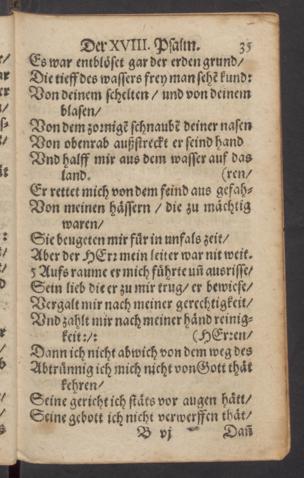 Der XVIII. Psalm. 35
Es war entblöset gar der erden grund/
Die tieff des wassers frey man sehẽ kund:
Von deinem schelten / und von deinem
blasen/
Von dem zornigẽ schnaubẽ deiner nasen
Von obenrab außstreckt er seind hand
Vnd halff mir aus dem wasser auf das
land. (ren/
Er rettet mich von dem feind aus gefah-
Von meinen hässern / die zu mächtig
waren/
Sie beugeten mir für in unfals zeit/
Aber der HErr mein leiter war nit weit.
5 Aufs raume er mich führte uñ ausrisse/
Sein lieb die er zu mir trug/ er bewiese/
Vergalt mir nach meiner gerechtigkeit/
Vnd zahlt mir nach meiner händ reinig-
keit:/: (HErren/
Dann ich nicht abwich von dem weg des
Abtrünnig ich mich nicht von Gott thät
kehren/
Seine gericht ich stäts vor augen hätt/
Seine gebott ich nicht verwerffen thät/
B vj Dañ